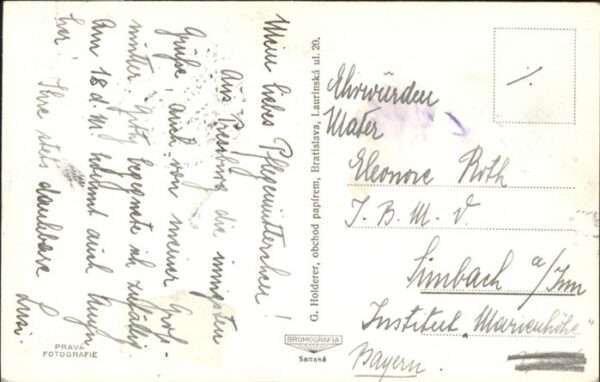 Mein liebes Pflegemütterchen!
Aus Pressburg die innigsten
Grüße, auch von meiner Groß-
mutter. begegnete ich zufällig
am 18 d. M. kommt auch
her! Ihre stets dankbare
Lusi.
PRAVÁ
FOTOGRAFIE
G. Holderer, obchod papírem, Bratislava, Laurinská ul. 20.
BROMOGRAFIA
Senská
Ehrwürden
Mater
Eleonore Roth
I. B. M. V.
Simbach a/Inn
Institut „Marienhöhe"
Bayern.